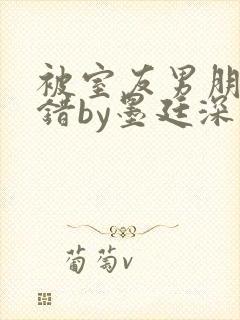 被室友男朋
错by墨廷深
葡萄v